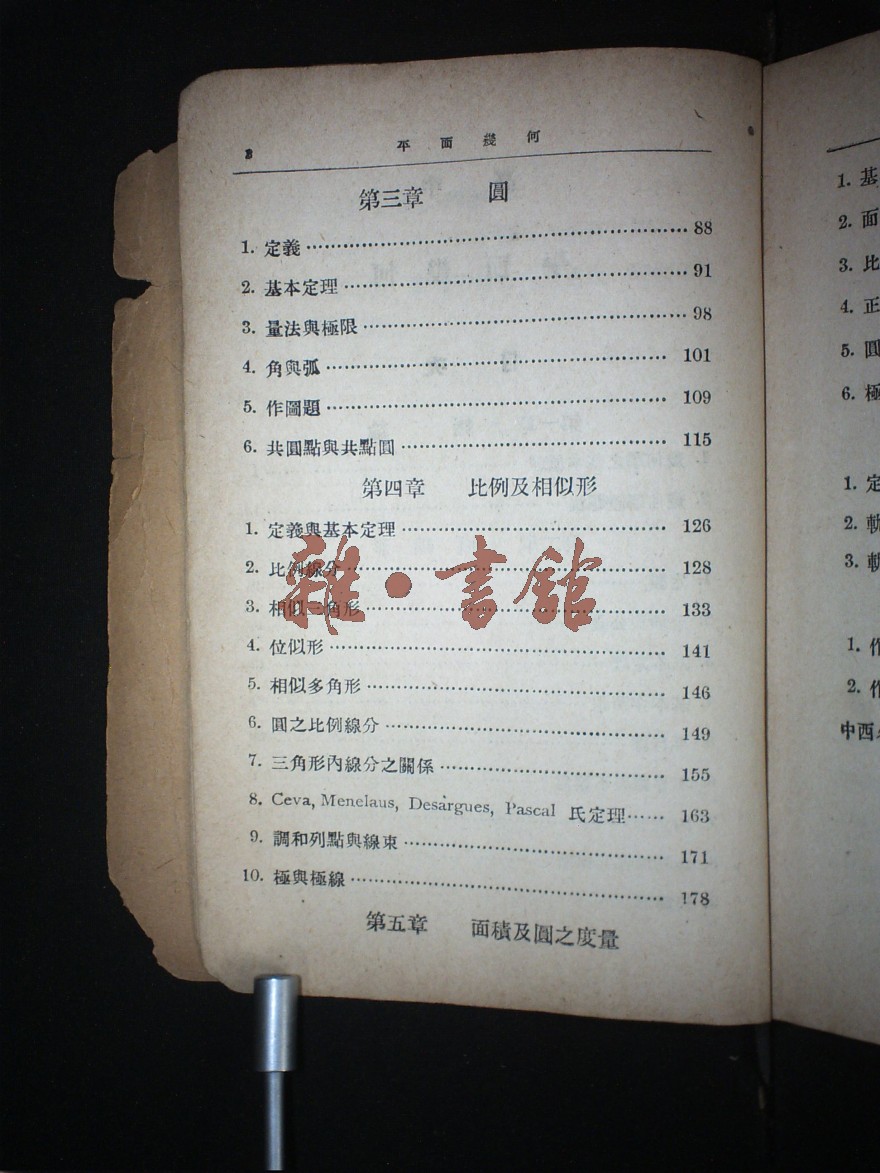 2 平面幾何
第三章 圓
1. 定義 88
2. 基本定理 91
3. 量法與極限 98
4. 角與弧 101
5. 作圖題 109
6. 共圓點與共點圓 115
第四章 比例及相似形
1. 定義與基本定理 126
2. 比例線分 128
3. 相似三角形 133
4. 位似形 141
5. 相似多角形 146
6. 圓之比例線分 149
7. 三角形內線分之關係 155
8. Ceva, Menelaus, Desargues, Pascal 氏定理 163
9. 調和列點與線束 171
10. 極與極線 178
第五章 面積及圓之度量
雜·書館
1. 基
2. 面
3. 比
4. 正
5. 圓
6. 極
1. 定
2. 軌
3. 軌
1. 作
2. 作
中西